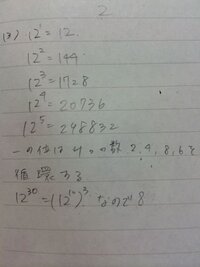 2
(3) 12¹ = 12.
12² = 144
12³ = 1728
12⁴ = 20736
12⁵ = 248832
一の位は4つの数2,4,8,6を
循環する
12³⁰ = (12¹⁰)³ なので8